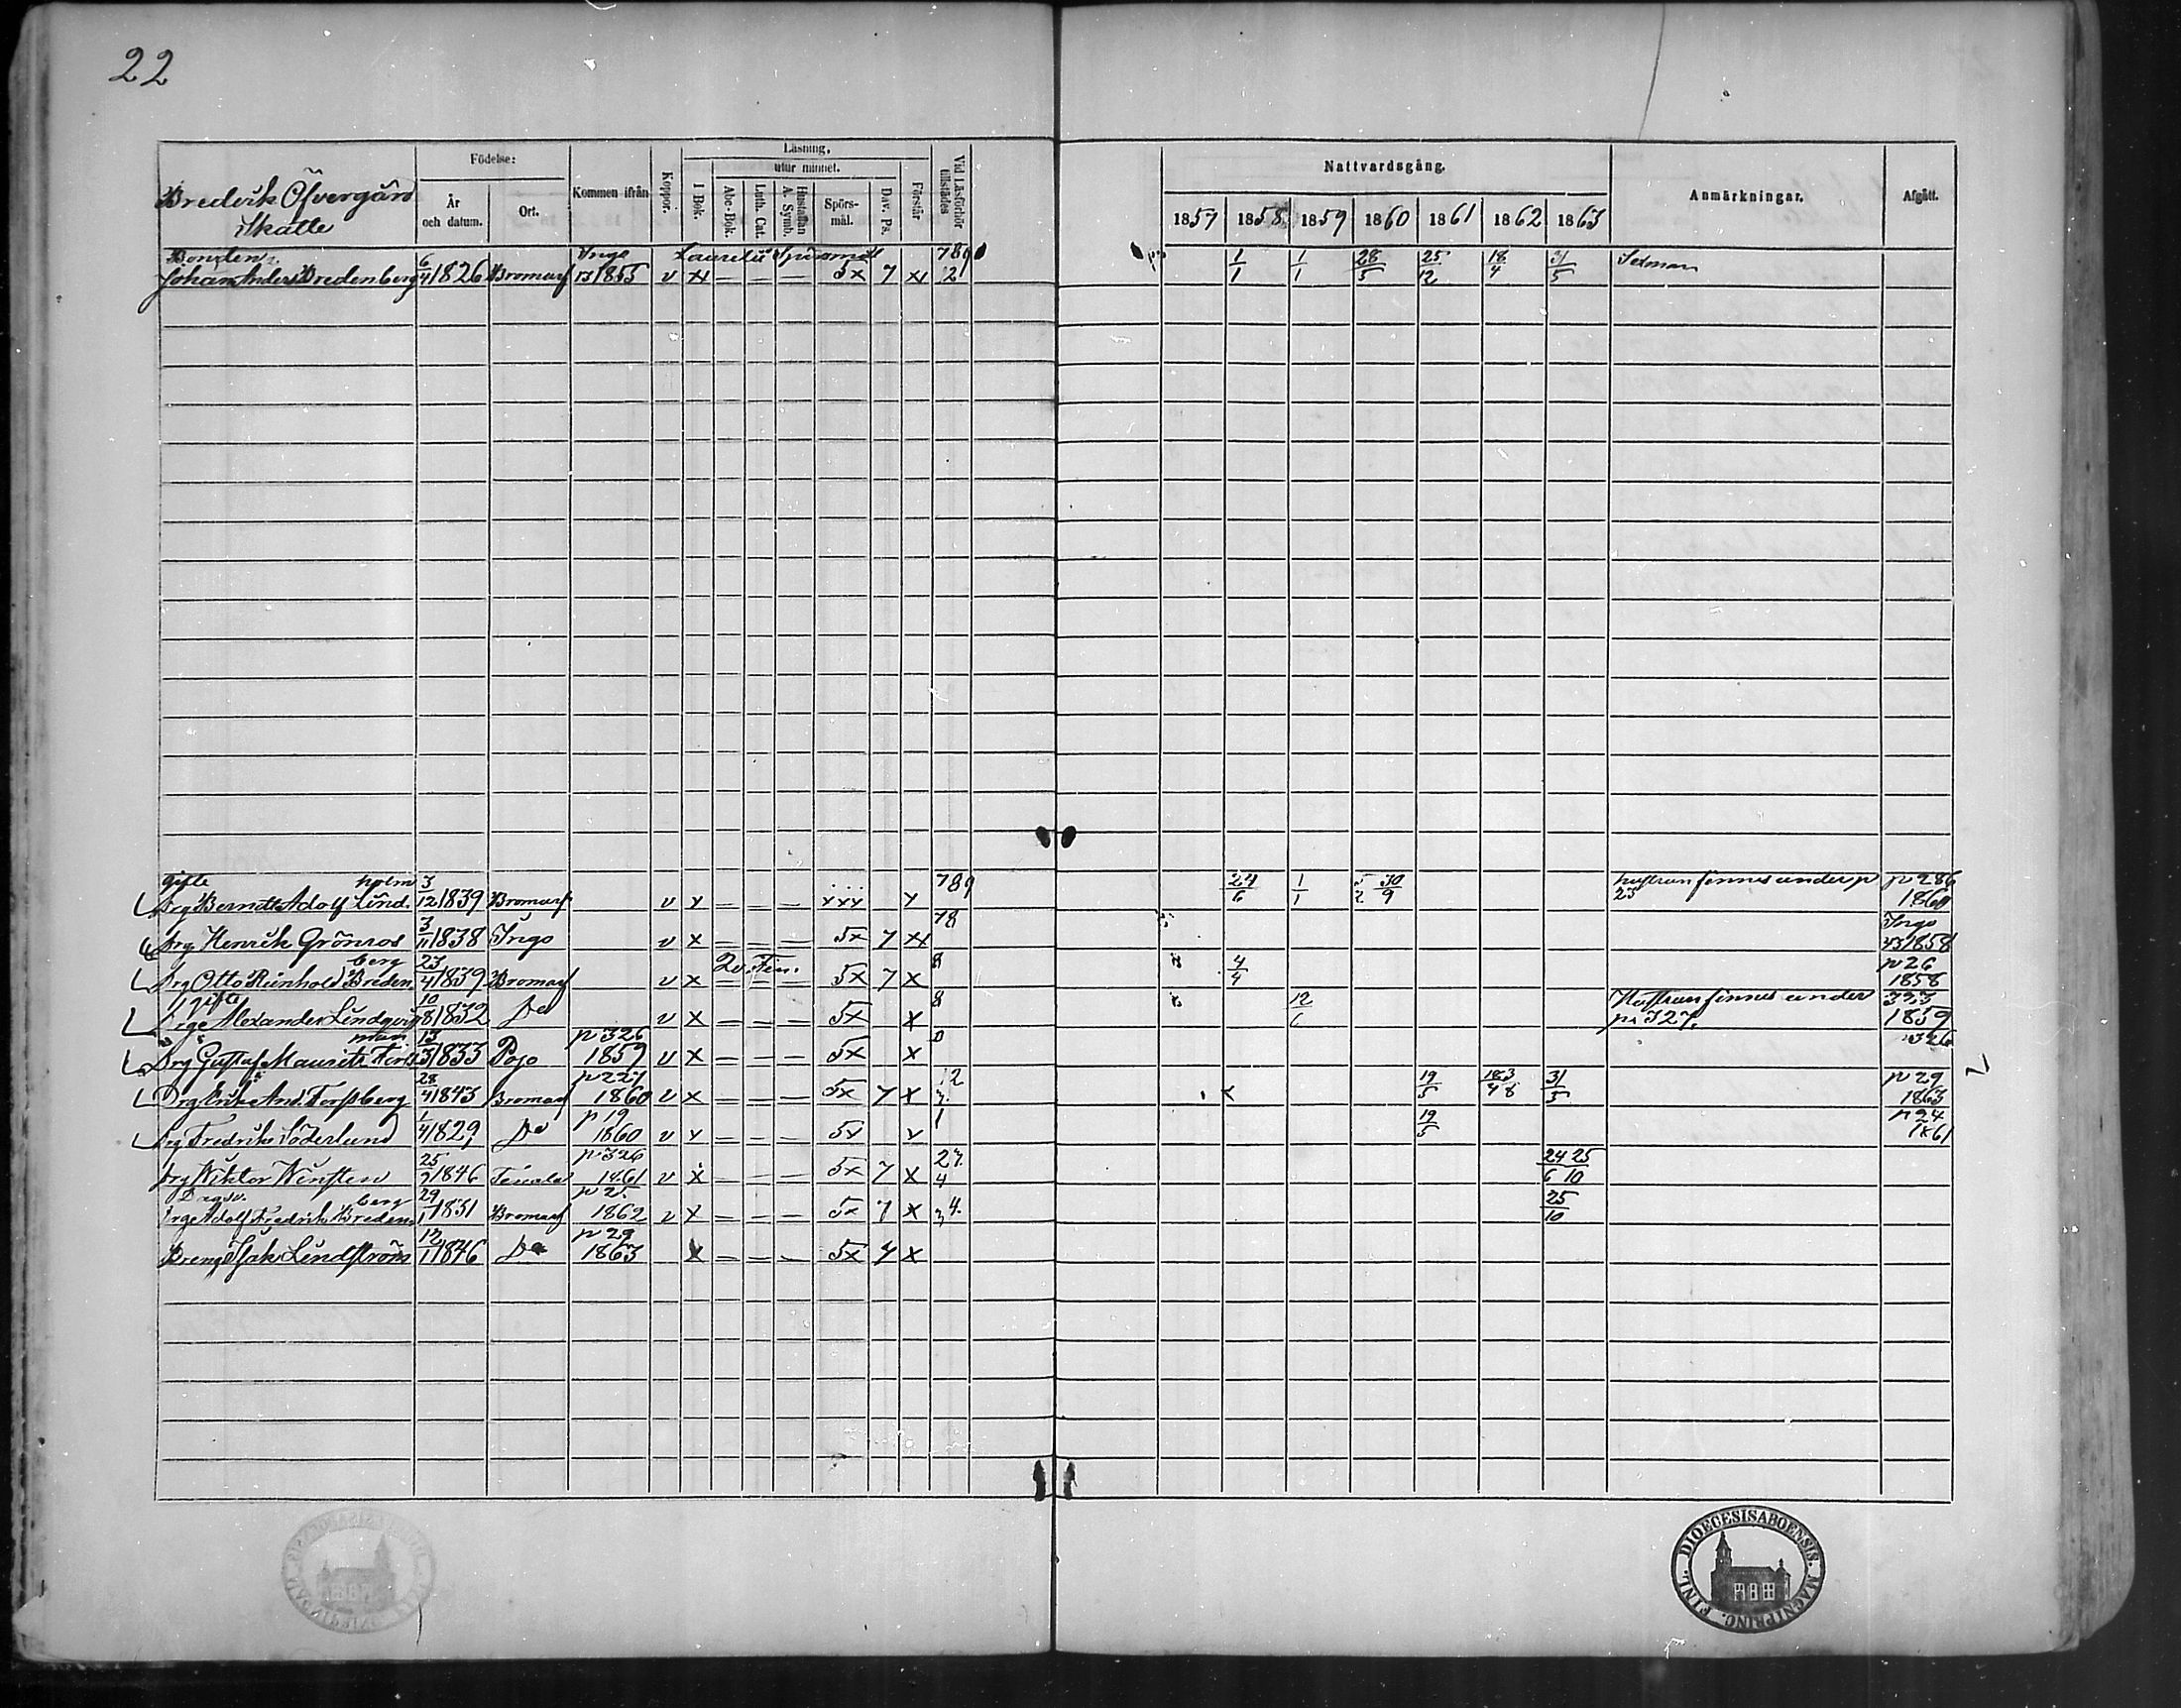 22
Födelse:
Läsning,
utur minnet.
Nattvardsgång.
Bredvik Öfvergård
Skatte
År
och datum.
Ort.
Kommen ifrån
Koppor.
I Bok.
Abc-Bok.
Luth. Cat.
Hustaflan
A. Symb.
Spörs-
mål.
Dav. Ps.
Förstår
Vid Läsförhör
tillstädes
1857 1858 1859 1860 1861 1862 1863
Anmärkningar.
Afgått.
Bonden Ingo 789
Johan Anders Bredenberg 6/4 1826 Bromarf 1855 v x — — — 5x 7 x 2 1/1 1/1 28/5 25/12 18/4 31/5
gifte holm 789
Drg Berndt Adolf Lind 3/12 1839 Bromarf v x — — — xxx x 24/6 1/1 5/2 30/9 hustrun finnes under p 23 p 286 1860
Drg Henrik Grönros 3/11 1838 Ingo v x — — — 5x 7 x 78 Ingo 1858
berg
Drg Otto Reinhold Breden 23/4 1839 Bromarf v x — — — 5x 7 x 8 4/4 p 26 1858
gifte
Drge Alexander Lindqvist 10/8 1832 Do v x 5x x 8 12/6 Hustrun finnes under p. 327. 323 1859
man
Drg Gustaf Mauritz Fors 13/3 1833 Pojo p 326 1859 v x — — — 5x x 326
Drg Erik And Forssberg 28/4 1843 Bromarf p 227 1860 v x — — — 5x 7 x 12 19/5 31/5 p 29 1863
Drg Fredrik Söderlund 1/4 1829 Do p 19 1860 v x — — — 5x x 1 19/5 p 24 1861
Drg Wiktor Wensten 25/9 1846 Tenala p 326 1861 v x — — — 5x 7 x 27. 4 24/6 25/10
berg
Drge Adolf Fredrik Breden 29/1 1831 Bromarf 1862 v x — — — 5x 7 x 4. 25/10
Dreng Isak Lindström 12/1 1846 Do p 29 1863 x — — — 5x 7 x
FINL. DIOECESIS ABOENSIS. MAGNI PRINC.